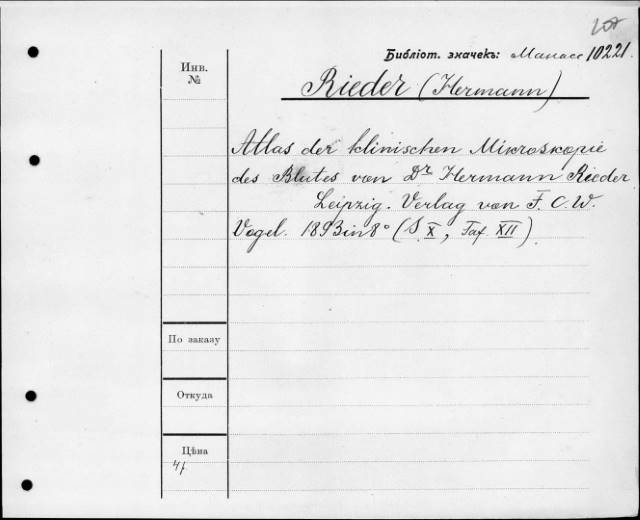 Библіот. значекъ: Манасс 10221.
Инв. №
Rieder (Hermann)
Atlas der klinischen Mikroskopie
des Blutes von Dr Hermann Rieder
Leipzig. Verlag von F. C. W.
Vogel. 1893 in 8° (S X, Taf XII)
По заказу
Откуда
Цѣна